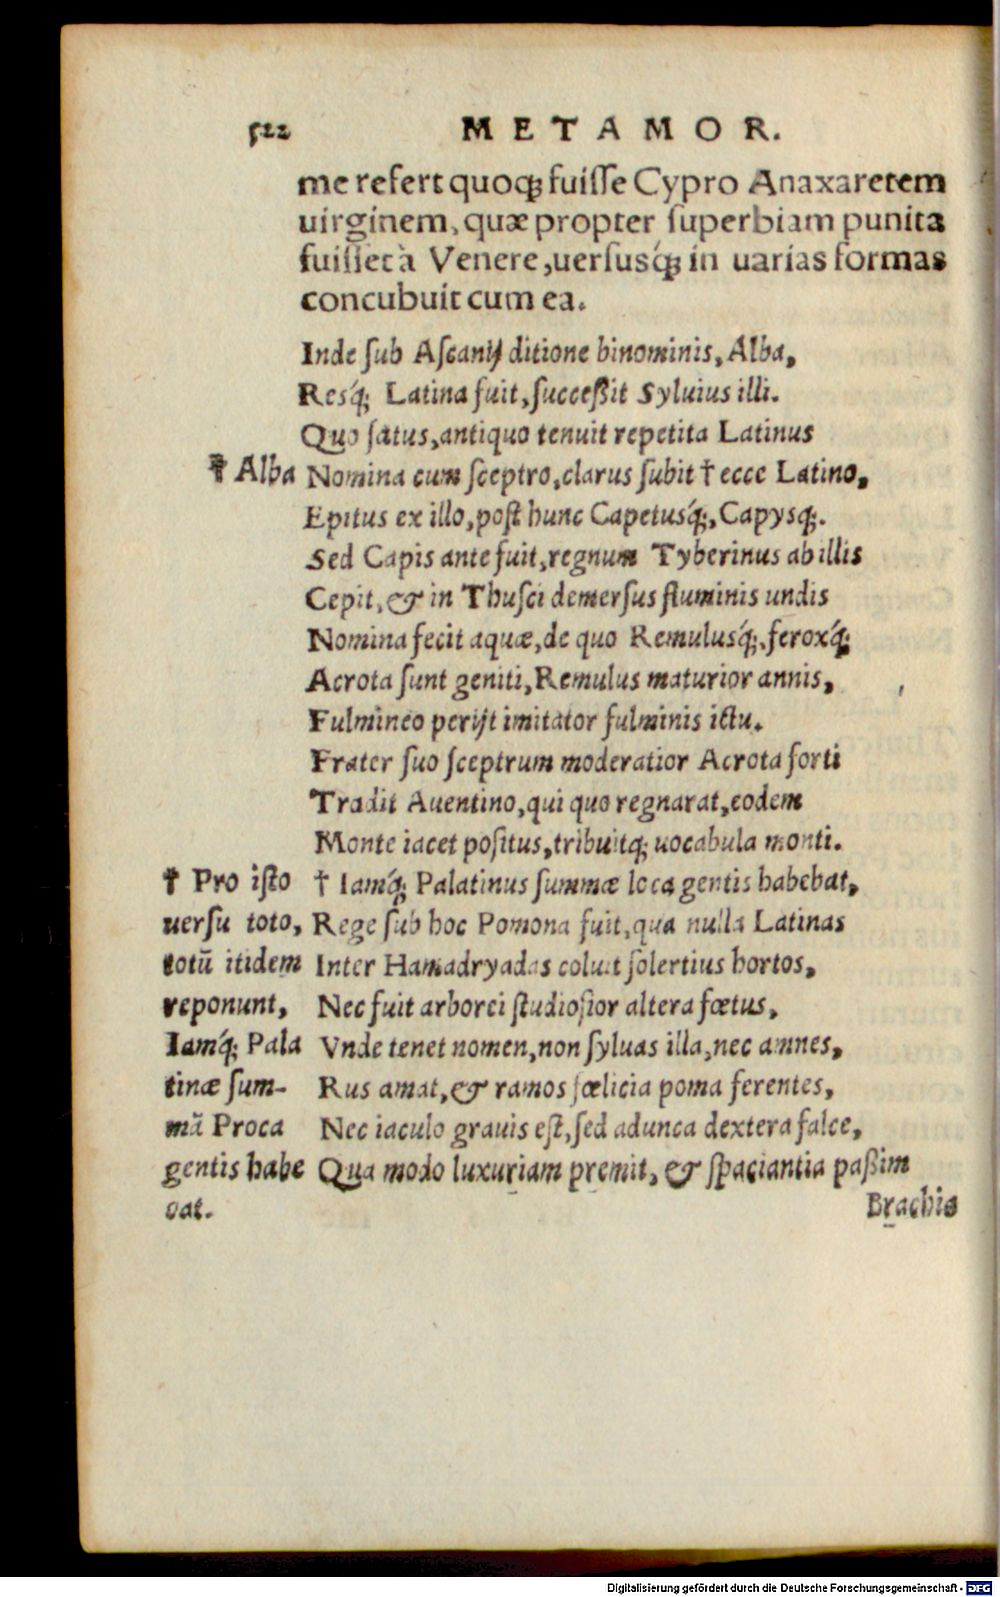 522 METAMOR.
me refert quoq; fuiſſe Cypro Anaxaretem
uirginem, quæ propter ſuperbiam punita
fuiſſet à Venere, uerſusq́; in uarias formas
concubuit cum ea.
Inde ſub Aſcanij ditione binominis, Alba,
Resq́; Latina fuit, ſucceßit Syluius illi.
Quo ſatus, antiquo tenuit repetita Latinus
✝ Alba Nomina cum ſceptro, clarus ſubit † ecce Latino,
Epitus ex illo, poſt hunc Capetusq́;, Capysq;.
Sed Capis ante fuit, regnum Tyberinus ab illis
Cepit, & in Thuſci demerſus fluminis undis
Nomina fecit aquæ, de quo Remulusq́;, feroxq́;
Acrota ſunt geniti, Remulus maturior annis,
Fulmineo perijt imitator fulminis ictu.
Frater ſuo ſceptrum moderatior Acrota forti
Tradit Auentino, qui quo regnarat, eodem
Monte iacet poſitus, tribuitq; uocabula monti.
✝ Pro iſto † Iamq́; Palatinus ſummæ loca gentis habebat,
uerſu toto, Rege ſub hoc Pomona fuit, qua nulla Latinas
totũ itidem Inter Hamadryadas coluit ſolertius hortos,
reponunt, Nec fuit arborei ſtudioſior altera fœtus,
Iamq́; Pala Vnde tenet nomen, non ſyluas illa, nec amnes,
tinæ ſum- Rus amat, & ramos fœlicia poma ferentes,
mã Proca Nec iaculo grauis eſt, ſed adunca dextera falce,
gentis habe Qua modo luxuriam premit, & ſpaciantia paßim
bat. Brachia
Digitalisierung gefördert durch die Deutsche Forschungsgemeinschaft - DFG